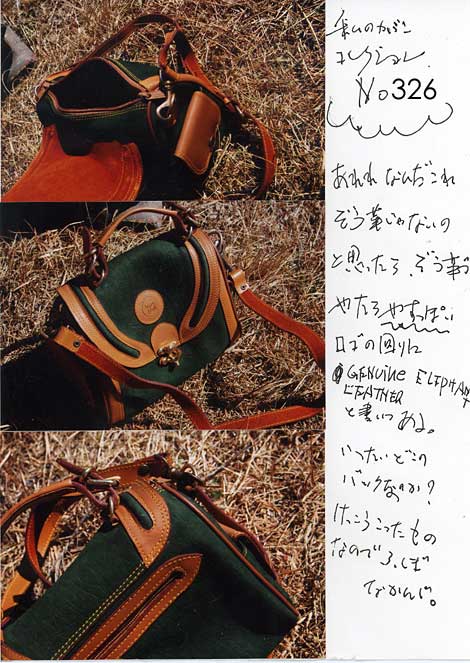 私のカバン
コレクション
No 326
あれれ なんだこれ
ぞう革じゃないの
と思ったら ぞう革
やたら やすっぽい
ロゴの回りに
GENUINE ELEPHANT
LEATHER
と書いてある。
いったいどこの
バックなのか？
けっこうこったもの
なのでふしぎ
なかんじ。